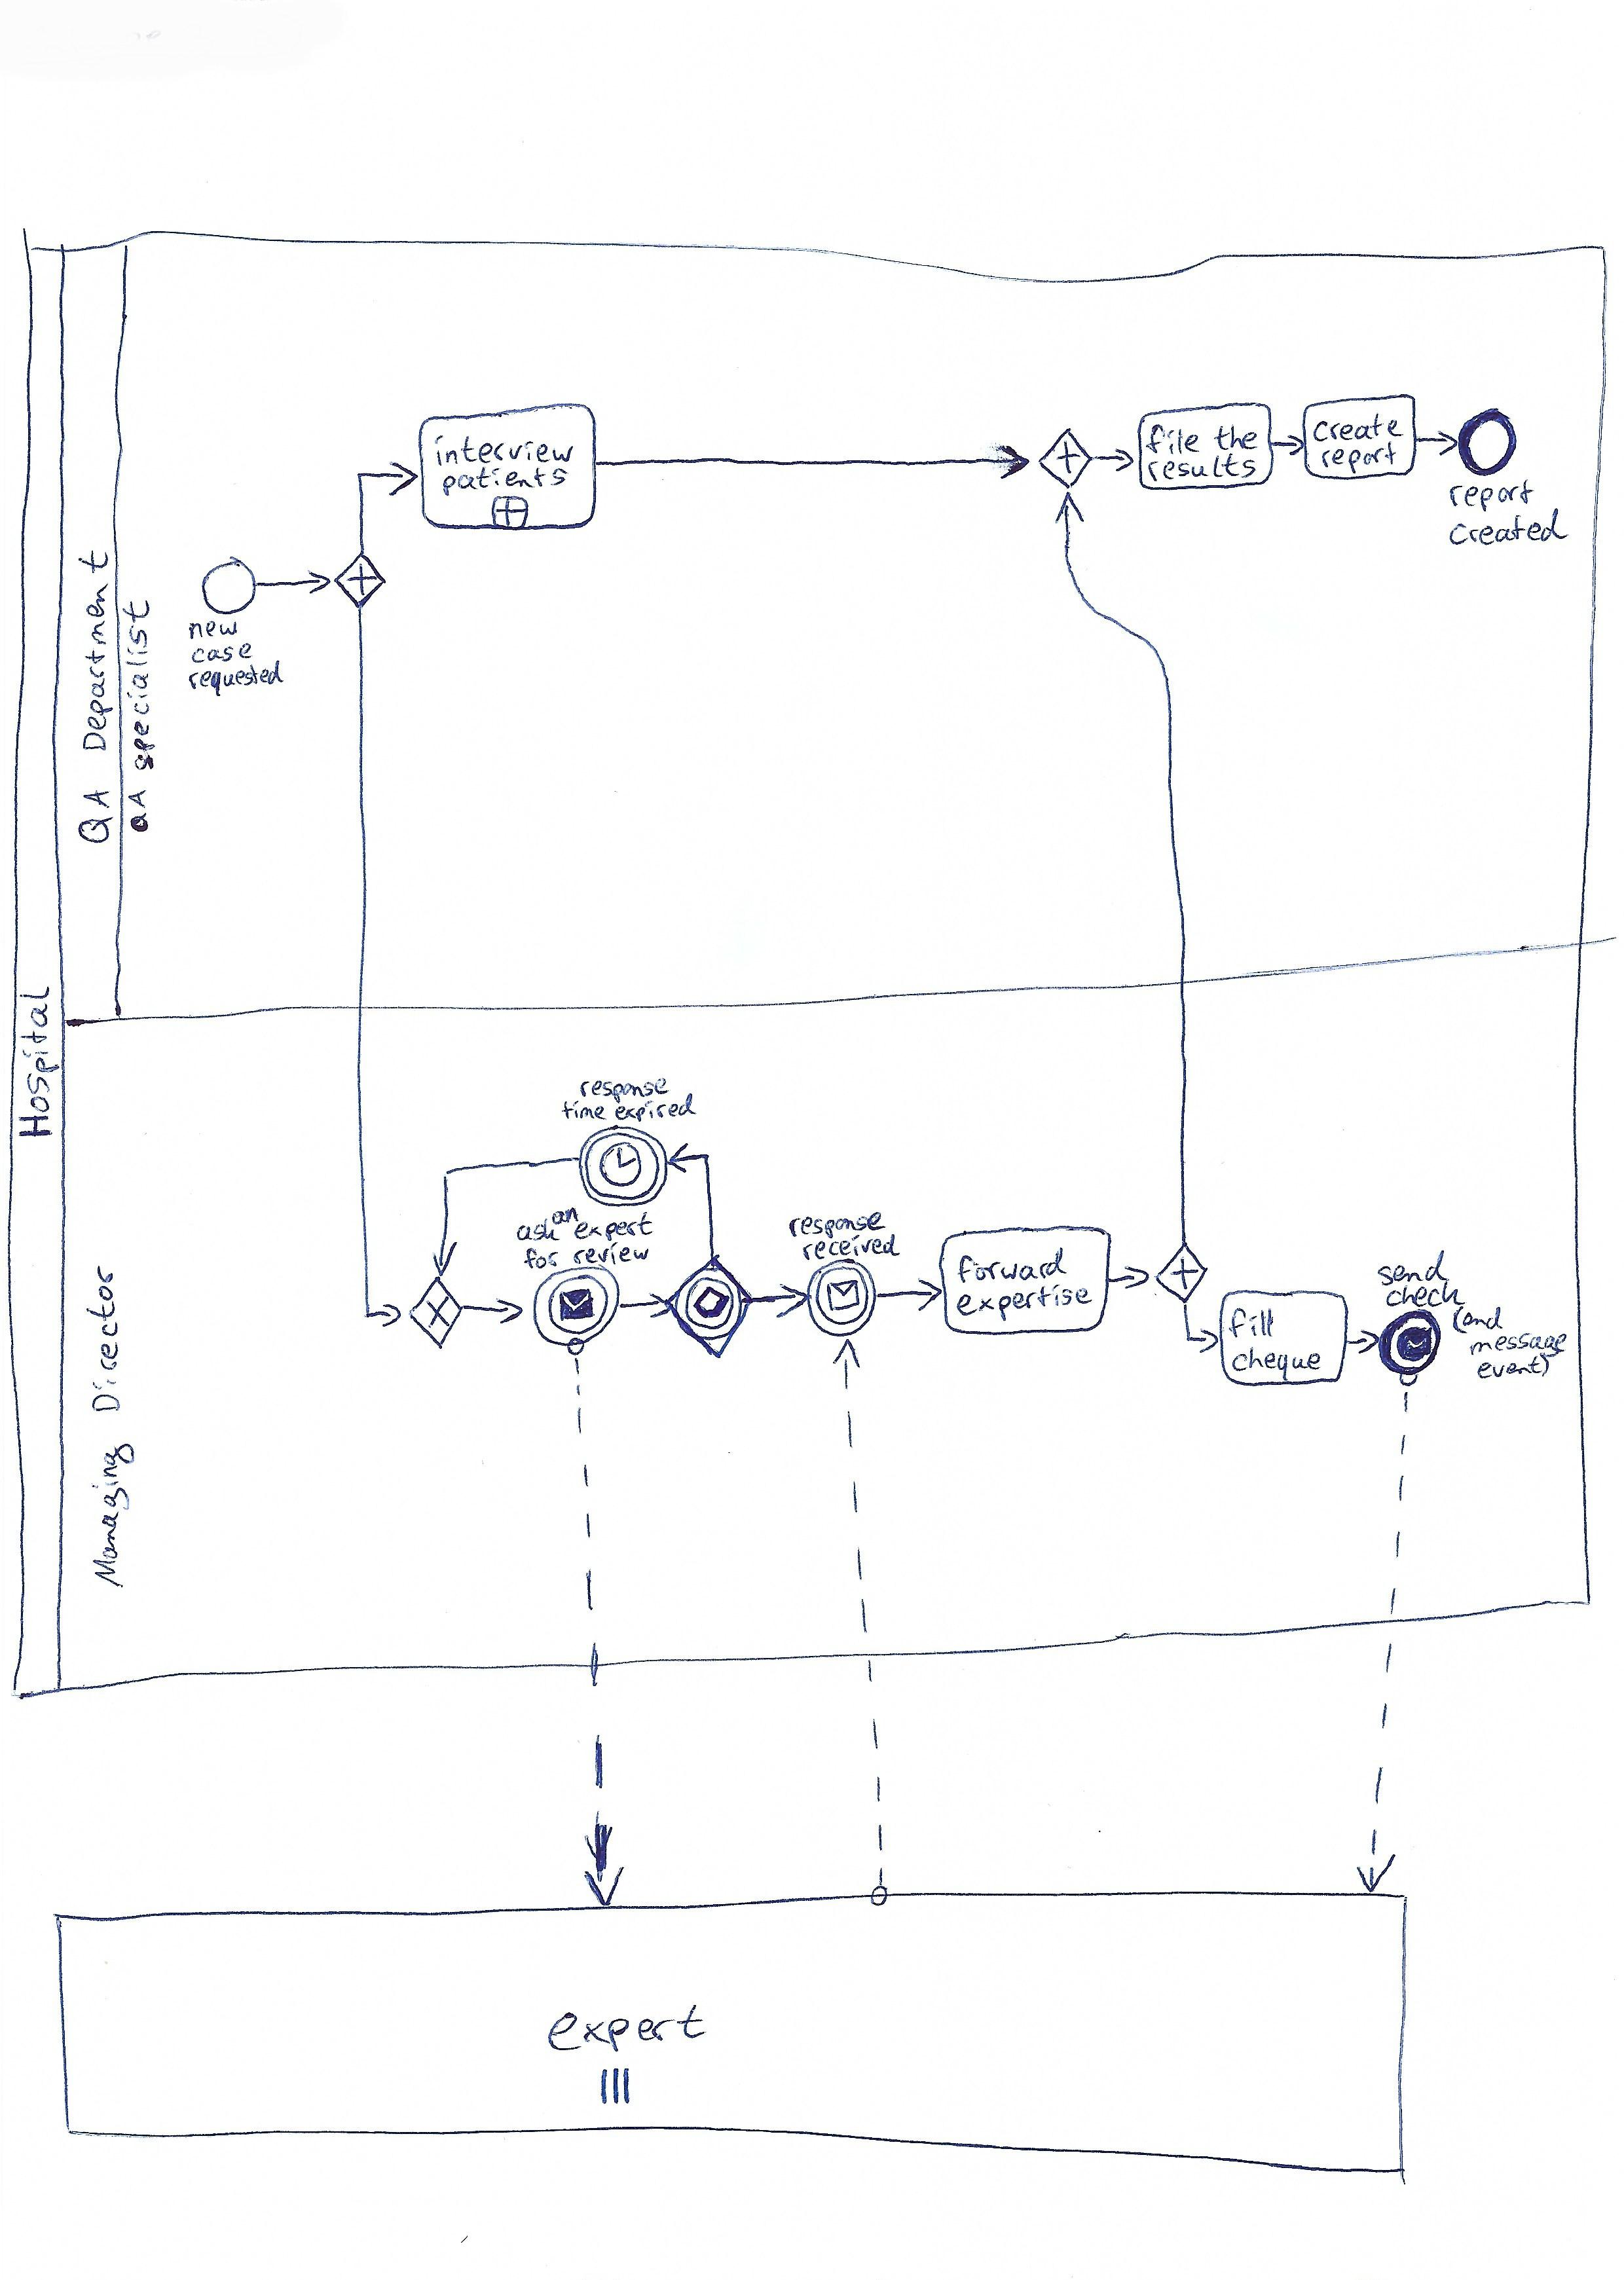 Hospital
QA Department
QA specialist
new
case
requested
interview
patients
file the
results
create
report
report
created
Managing Director
response
time expired
ask an expert
for review
response
received
forward
expertise
fill
cheque
send
check
(end
message
event)
expert